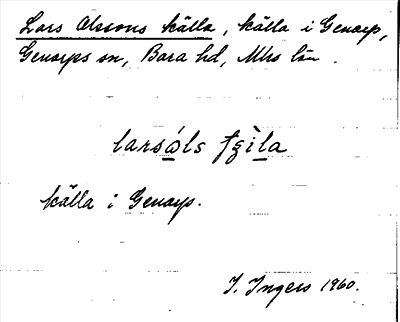 Lars Olssons källa, källa i Genarp,
Genarps sn, Bara hd, Mlhs län.
larsòls
källa i Genarp.
I. Ingers 1960.